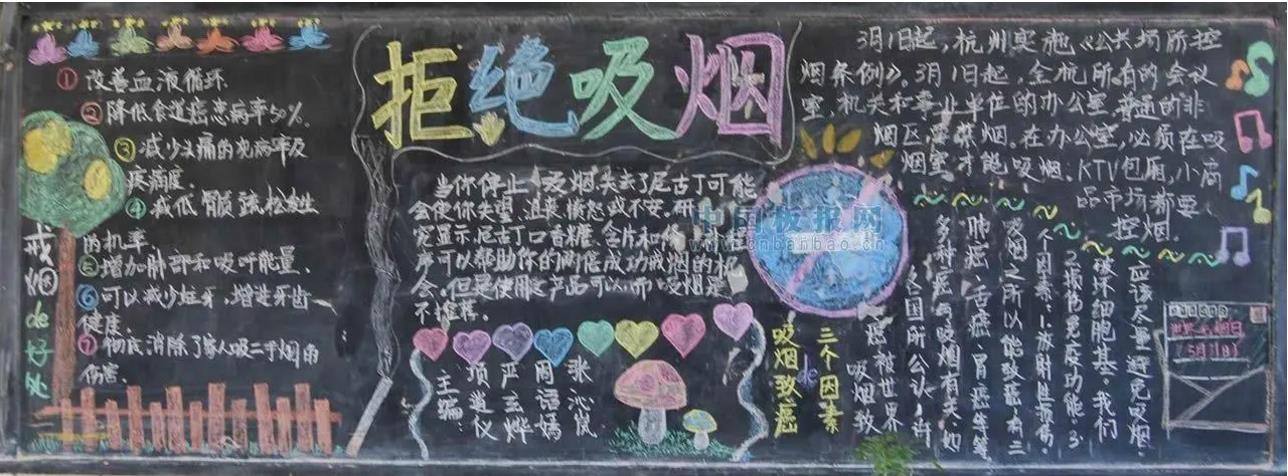 拒绝吸烟
戒烟de好处
①改善血液循环
②降低食道癌患病率50%.
③减少头痛的发病率及
疼痛度.
④减低骨质疏松发生
的机率.
⑤增加肺部和呼吸能量.
⑥可以减少蛀牙,增进牙齿
健康.
⑦彻底消除了家人吸二手烟的
伤害.
当你停止吸烟,失去了尼古丁可能
会使你失望,沮丧愤怒或不安.研
究显示,尼古丁口香糖、含片和
序可以帮助你的同伴成功戒烟的机
会.但是使用产品可以
不推荐。
主编:
项逍仪
严玄烨
周语嫣
张沁岚
3月1日起,杭州实施《公共场所控
烟条例》。3月1日起,全杭所有的会议
室,机关和事业单位的办公室,普通的非
烟区要禁烟。在办公室,必须在吸
烟室,才能吸烟。KTV包厢,小商
品市场都要
控烟。
三个因素
de
吸烟致癌
吸烟致
癌被世界
各国所公认,许
多种癌与吸烟有关,如
肺癌、舌癌、胃癌等等
吸烟之所以能致癌,有三
个因素:1.放射性
2.损伤免疫功能。3.
破坏细胞基。我们
应该尽量避免吸烟.
世界无烟日
5月31日
中国板报网
www.cnbanbao.cn